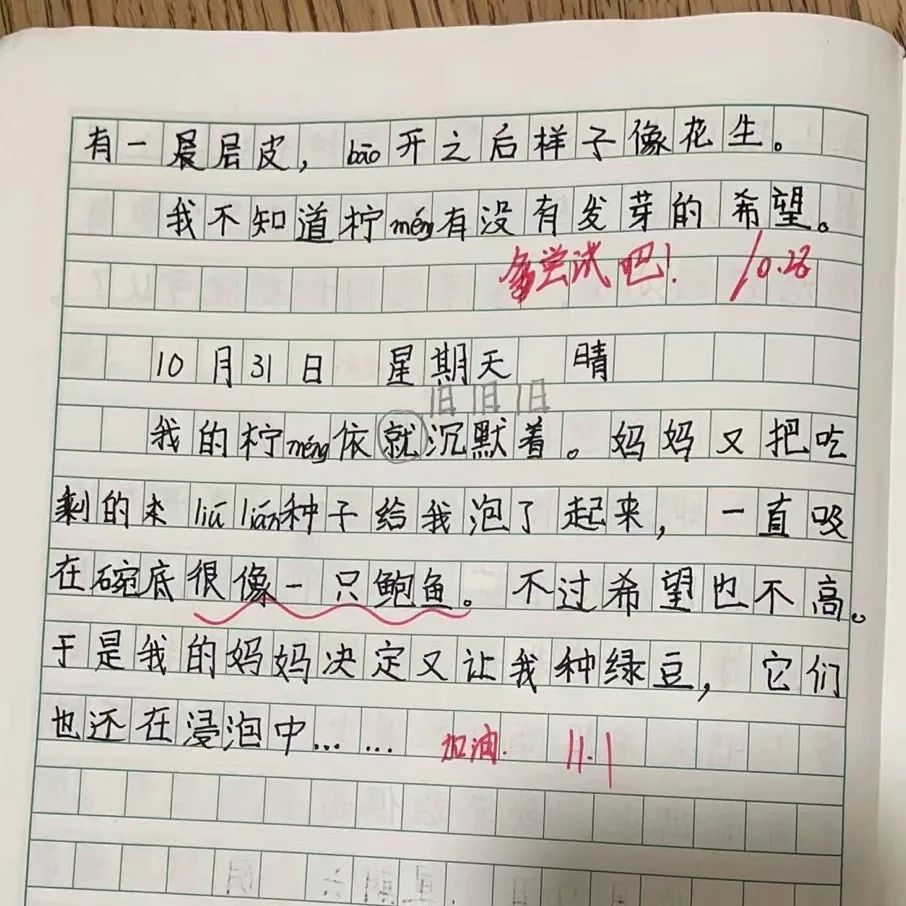 有一层层皮，bāo开之后样子像花生。
我不知道柠méng有没有发芽的希望。
多尝试吧！ 10.28
10月31日 星期天 晴
旧旧旧
我的柠méng依就沉默着。妈妈又把吃
剩的来liū lián种子给我泡了起来，一直吸
在碗底很像一只鲍鱼。不过希望也不高。
于是我的妈妈决定又让我种绿豆，它们
也还在浸泡中……
加油. 11.1